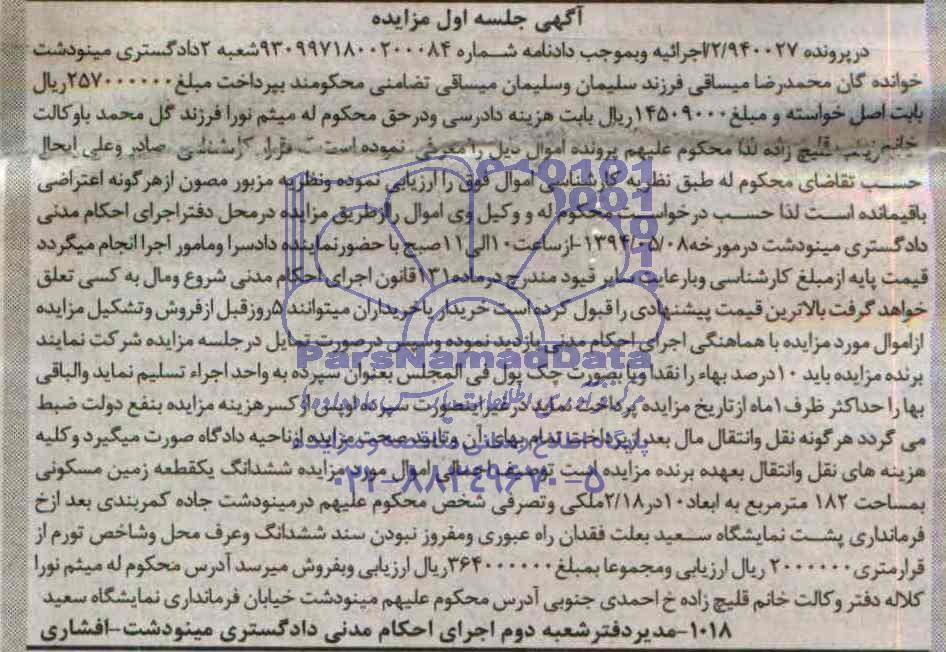 آگهی جلسه اول مزایده
درپرونده ۲/۹۴۰۰۲۷/اجرائیه وبموجب دادنامه شماره ۹۳۰۹۹۷۱۸۰۰۲۰۰۰۸۴شعبه ۲دادگستری مینودشت
خوانده گان محمدرضا میساقی فرزند سلیمان وسلیمان میساقی تضامنی محکومند بپرداخت مبلغ۲۵۷۰۰۰۰۰۰ریال
بابت اصل خواسته و مبلغ۱۴۵۰۹۰۰۰ریال بابت هزینه دادرسی ودرحق محکوم له میثم نورا فرزند گل محمد باوکالت
خانم زینب قلیچ زاده لذا محکوم علیهم پرونده اموال ذیل را معرفی نموده است قرار کارشناسی صادر وعلی ایحال
حسب تقاضای محکوم له طبق نظریه کارشناسی اموال فوق را ارزیابی نموده ونظریه مزبور مصون ازهرگونه اعتراضی
باقیمانده است لذا حسب درخواست محکوم له و وکیل وی اموال را ازطریق مزایده درمحل دفتراجرای احکام مدنی
دادگستری مینودشت درمورخه۱۳۹۴/۰۵/۰۸-ازساعت۱۰الی۱۱صبح با حضورنماینده دادسرا ومامور اجرا انجام میگردد
قیمت پایه ازمبلغ کارشناسی وبارعایت سایر قیود مندرج درماده۱۳۱قانون اجرای احکام مدنی شروع ومال به کسی تعلق
خواهد گرفت بالاترین قیمت پیشنهادی را قبول کرده است خریدار یاخریداران میتوانند۵روزقبل ازفروش وتشکیل مزایده
ازاموال مورد مزایده با هماهنگی اجرای احکام مدنی بازدید نموده وسپس درصورت تمایل درجلسه مزایده شرکت نمایند
برنده مزایده باید ۱۰درصد بهاء را نقدا ویا بصورت چک پول فی المجلس بعنوان سپرده به واحد اجراء تسلیم نماید والباقی
بها را حداکثر ظرف۱ماه ازتاریخ مزایده پرداخت نماید درغیراینصورت سپرده اوپس ازکسرهزینه مزایده بنفع دولت ضبط
می گردد هرگونه نقل وانتقال مال بعد ازپرداخت تمام بهای آن وتایید صحت مزایده ازناحیه دادگاه صورت میگیرد وکلیه
هزینه های نقل وانتقال بعهده برنده مزایده است توصیف اجمالی اموال مورد مزایده ششدانگ یکقطعه زمین مسکونی
بمساحت ۱۸۲ مترمربع به ابعاد۱۰در۲/۱۸ملکی وتصرفی شخص محکوم علیهم درمینودشت جاده کمربندی بعد ازخ
فرمانداری پشت نمایشگاه سعید بعلت فقدان راه عبوری ومفروز نبودن سند ششدانگ وعرف محل وشاخص تورم از
قرارمتری۲۰۰۰۰۰۰ ریال ارزیابی ومجموعا بمبلغ۳۶۴۰۰۰۰۰۰ریال ارزیابی وبفروش میرسد آدرس محکوم له میثم نورا
کلاله دفتر وکالت خانم قلیچ زاده خ احمدی جنوبی آدرس محکوم علیهم مینودشت خیابان فرمانداری نمایشگاه سعید
۱۰۱۸-مدیردفترشعبه دوم اجرای احکام مدنی دادگستری مینودشت-افشاری
ParsNamadData
۰۲۱-۸۸۳۴۹۶۷۰-۵